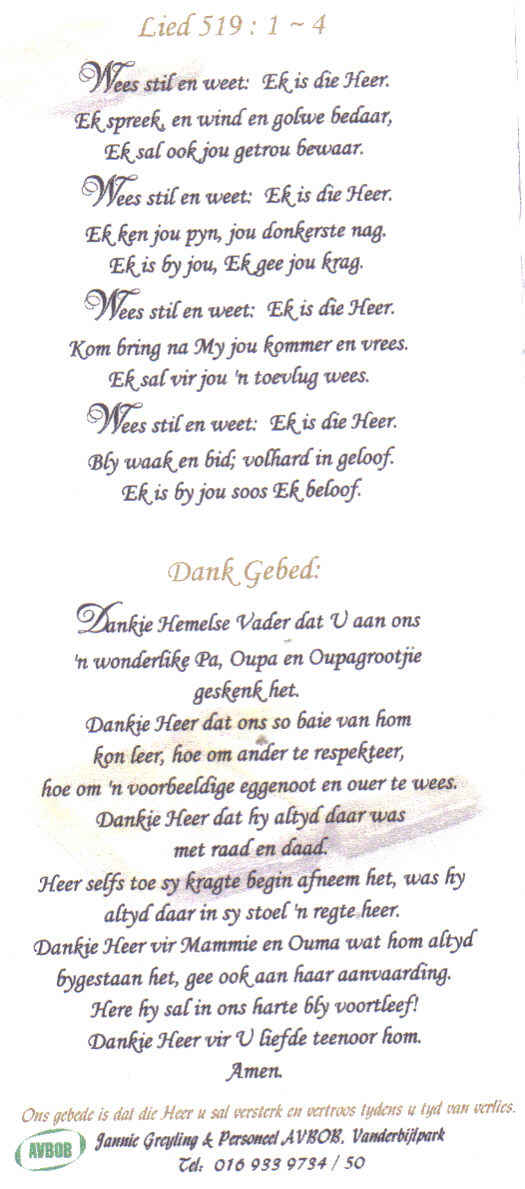 Lied 519 : 1 ~ 4
Wees stil en weet: Ek is die Heer.
Ek spreek, en wind en golwe bedaar,
Ek sal ook jou getrou bewaar.
Wees stil en weet: Ek is die Heer.
Ek ken jou pyn, jou donkerste nag.
Ek is by jou, Ek gee jou krag.
Wees stil en weet: Ek is die Heer.
Kom bring na My jou kommer en vrees.
Ek sal vir jou 'n toevlug wees.
Wees stil en weet: Ek is die Heer.
Bly waak en bid; volhard in geloof.
Ek is by jou soos Ek beloof.
Dank Gebed:
Dankie Hemelse Vader dat U aan ons
'n wonderlike Pa, Oupa en Oupagrootjie
geskenk het.
Dankie Heer dat ons so baie van hom
kon leer, hoe om ander te respekteer,
hoe om 'n voorbeeldige eggenoot en ouer te wees.
Dankie Heer dat hy altyd daar was
met raad en daad.
Heer selfs toe sy kragte begin afneem het, was hy
altyd daar in sy stoel 'n regte heer.
Dankie Heer vir Mammie en Ouma wat hom altyd
bygestaan het, gee ook aan haar aanvaarding.
Here hy sal in ons harte bly voortleef!
Dankie Heer vir U liefde teenoor hom.
Amen.
Ons gebede is dat die Heer u sal versterk en vertroos tydens u tyd van verlies.
AVBOB Jannie Greyling & Personeel AVBOB, Vanderbijlpark
Tel: 016 933 9734 / 50